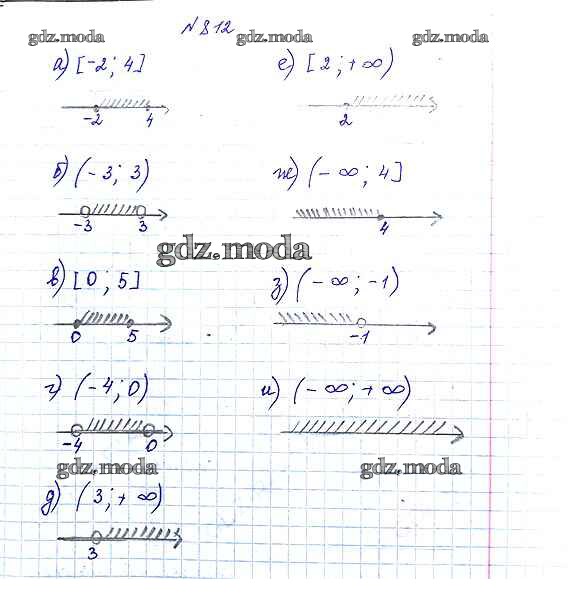 N 812
gdz.moda gdz.moda gdz.moda
а) [-2; 4]
-2 4
б) (-3; 3)
-3 3
gdz.moda
в) [0; 5]
0 5
г) (-4; 0)
-4 0
gdz.moda
д) (3; +∞)
3
е) [2; +∞)
2
ж) (-∞; 4]
4
з) (-∞; -1)
-1
и) (-∞; +∞)
gdz.moda